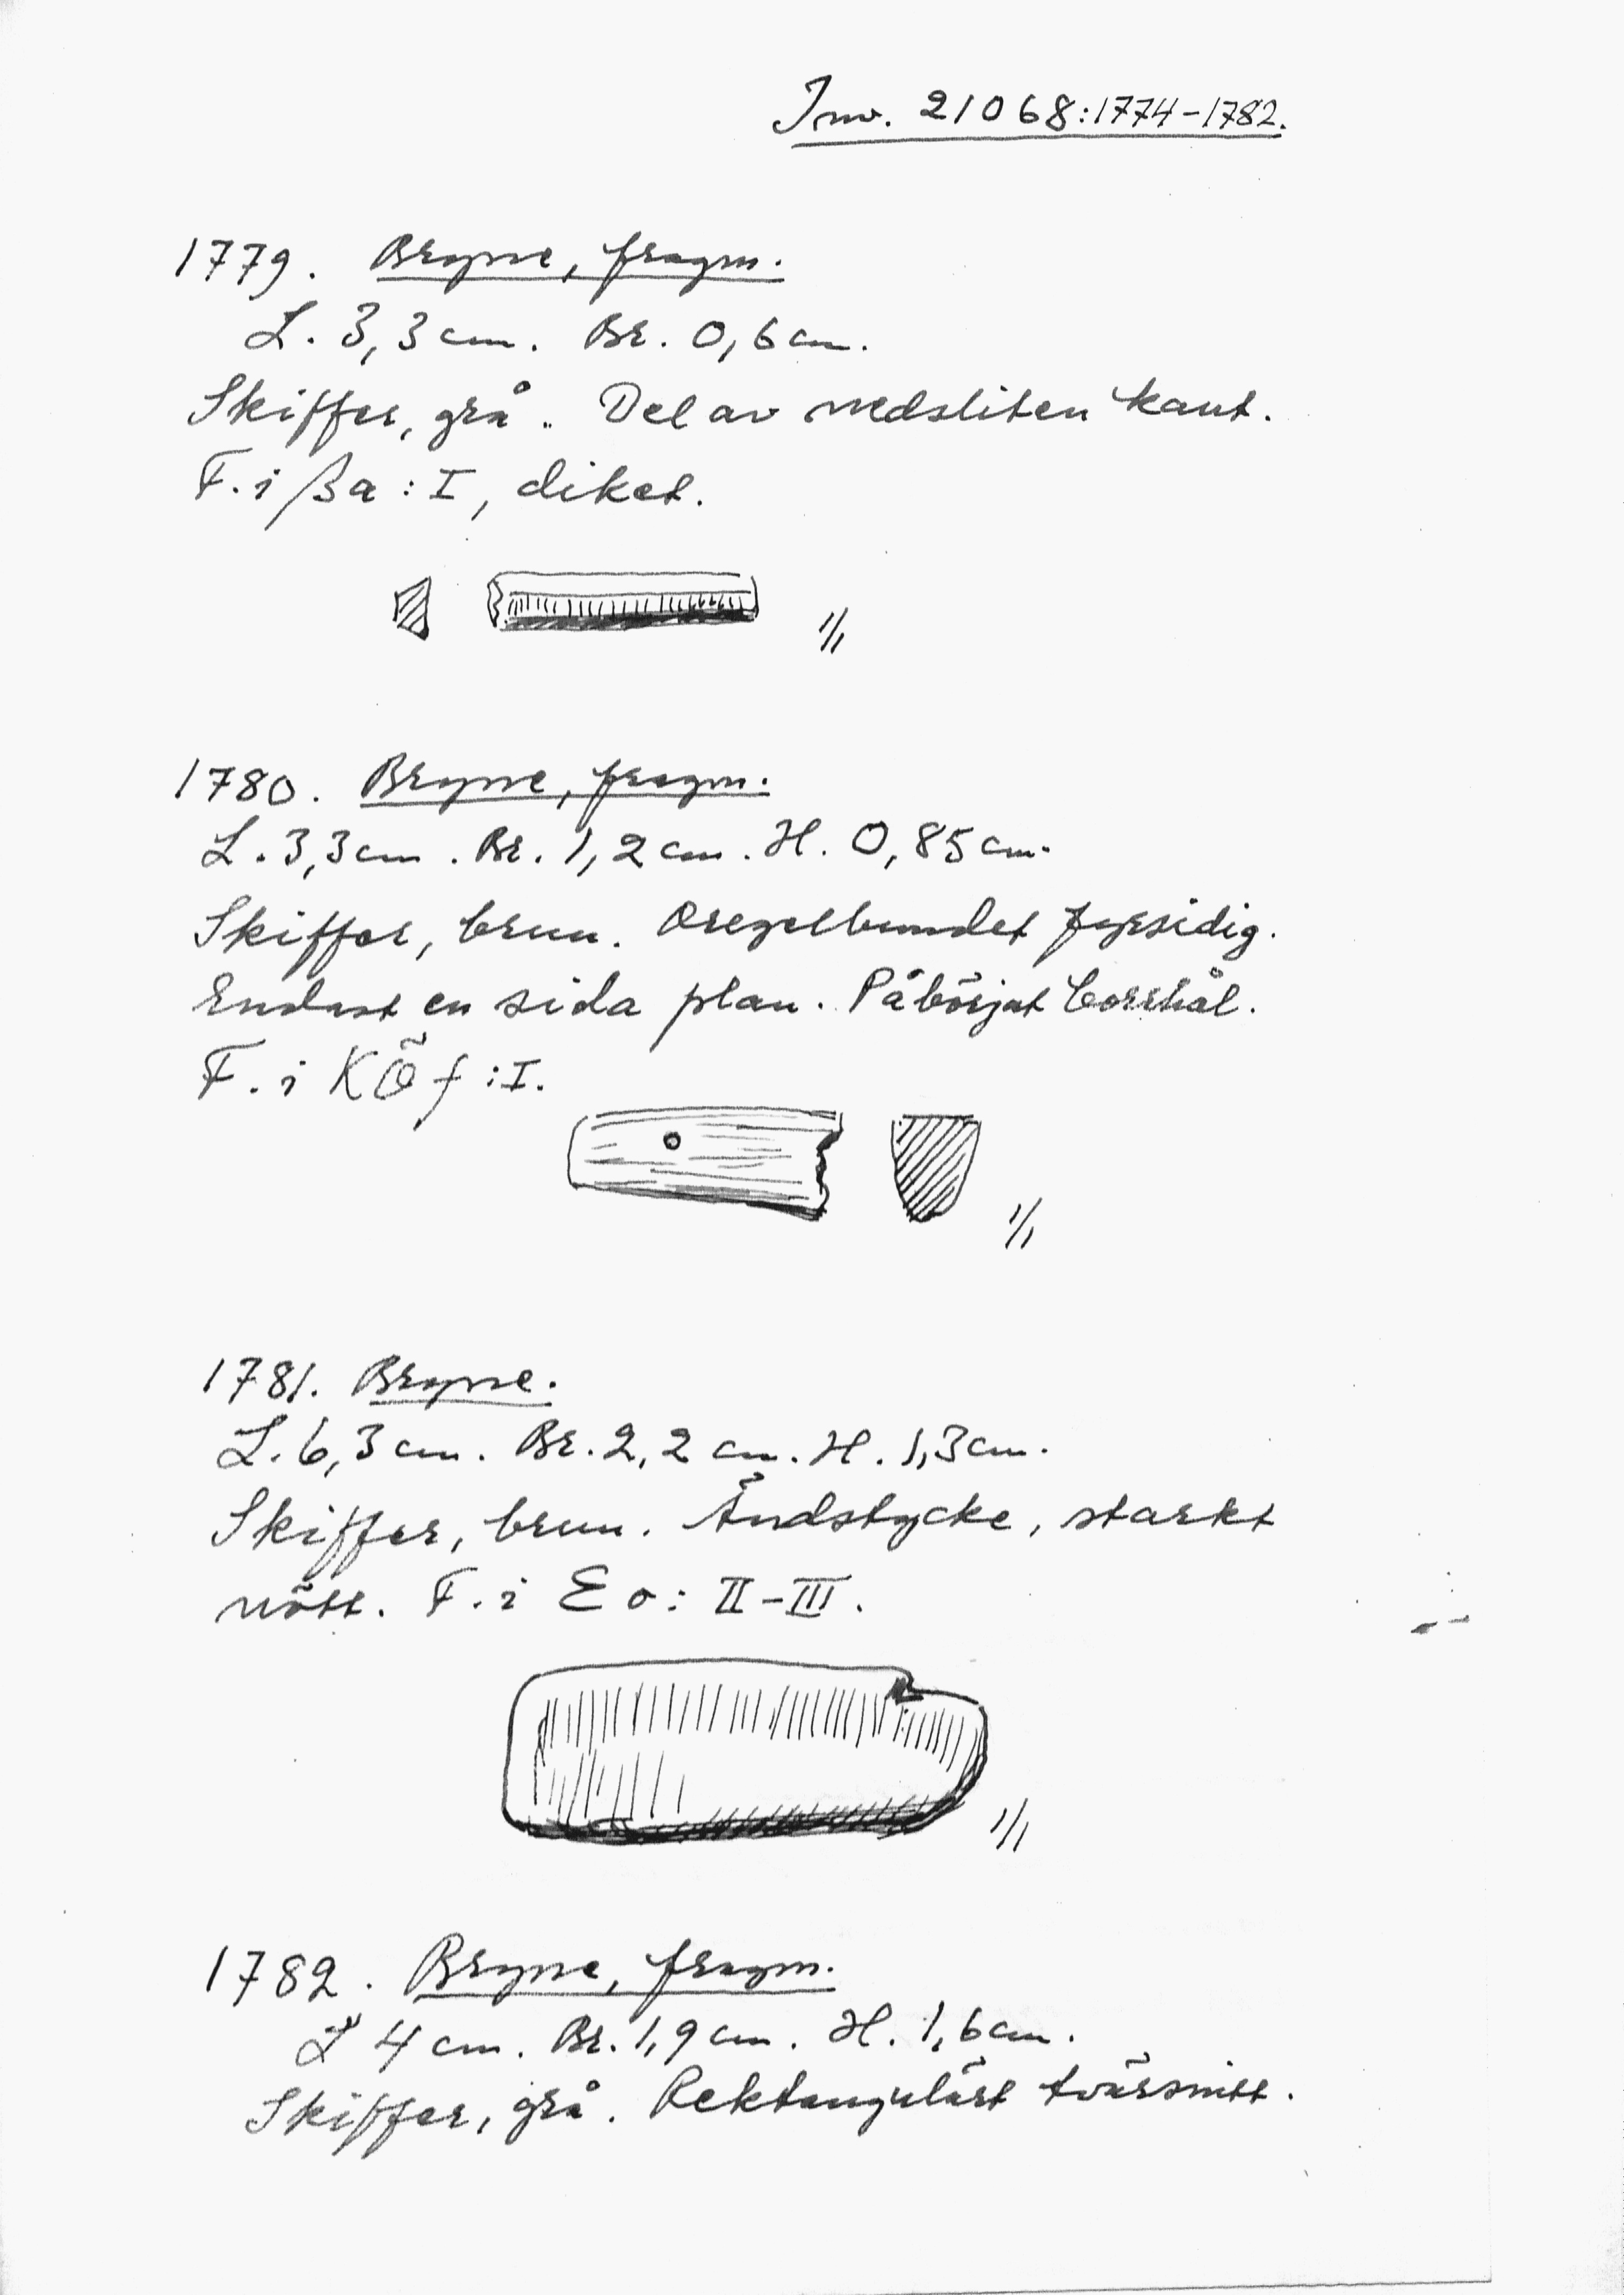 Inv. 21068:1774-1782.
1779. Bryne, fragm.
L. 3,3 cm. Br. 0,6 cm.
Skiffer, grå. Del av nedsliten kant.
F. i βa : I, diket.
1/1
1780. Bryne, fragm.
L. 3,3 cm. Br. 1,2 cm. H. 0,85 cm.
Skiffer, brun. Oregelbundet fyrsidig.
Endast en sida plan. Påbörjat borrhål.
F. i KÖf : I.
1/1
1781. Bryne.
L. 6,3 cm. Br. 2,2 cm. H. 1,3 cm.
Skiffer, brun. Ändstycke, starkt
nött. F. i Eo : II-III.
1/1
1782. Bryne, fragm.
L 4 cm. Br. 1,9 cm. H. 1,6 cm.
Skiffer, grå. Rektangulärt tvärsnitt.